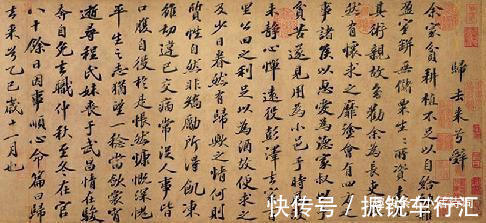 歸去来兮辞
余家貧耕植不足以自給
盈室缾無儲粟生々所資未
其術親故多勸余為長吏
然有懷求之靡途會有四方
事諸侯以惠愛為德家叔以
貧苦遂見用為小邑于時
未静心憚遠役彭澤去家
里公田之利足以為酒故便求之
及少日眷然有歸歟之情何則
質性自然非矯勵所得飢凍
雖切違己交病嘗從人事皆
口腹自役於是悵然慷慨深愧
平生之志猶望一稔當斂裳宵
逝尋程氏妹喪于武昌情在駿
奔自免去職仲秋至冬在官
八十餘日因事順心命篇曰歸
去来兮乙巳歲十一月也
快传号/振锐车行汇